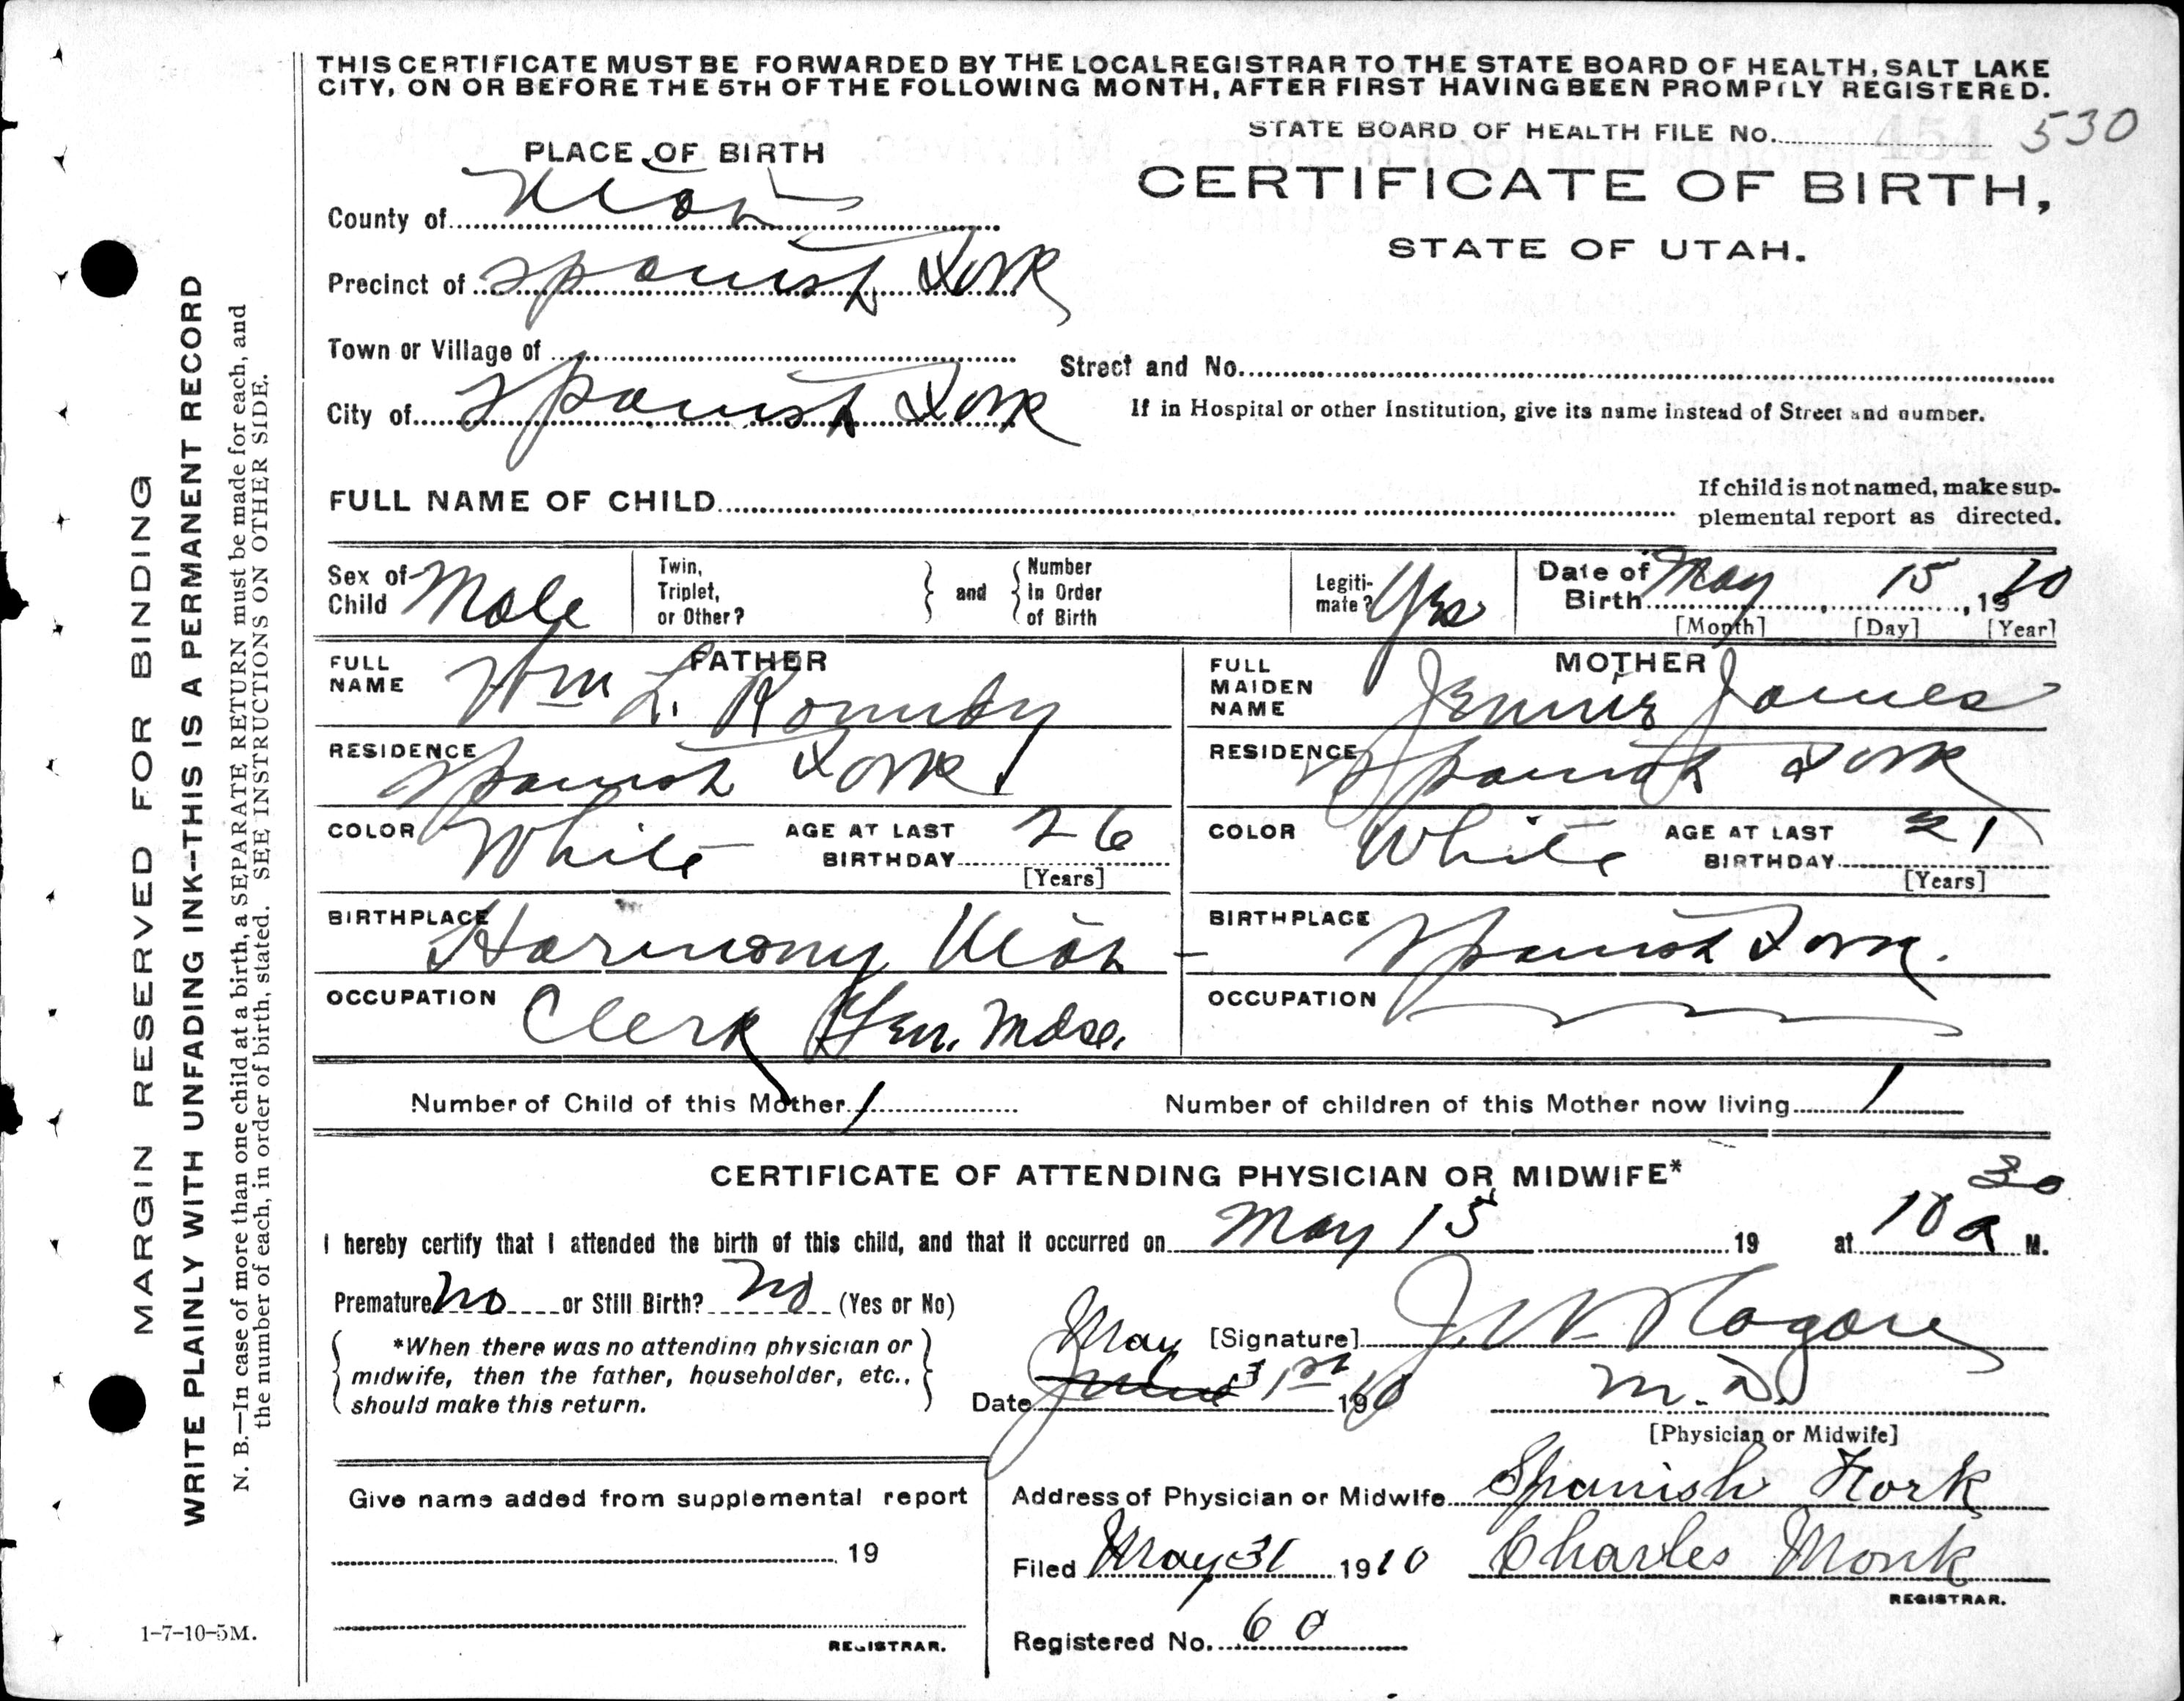 THIS CERTIFICATE MUST BE FORWARDED BY THE LOCAL REGISTRAR TO THE STATE BOARD OF HEALTH, SALT LAKE
CITY, ON OR BEFORE THE 5TH OF THE FOLLOWING MONTH, AFTER FIRST HAVING BEEN PROMPTLY REGISTERED.
STATE BOARD OF HEALTH FILE No. 530
PLACE OF BIRTH
CERTIFICATE OF BIRTH,
STATE OF UTAH.
County of Utah
Precinct of Spanish Fork
Town or Village of
Street and No.
City of Spanish Fork
If in Hospital or other Institution, give its name instead of Street and number.
FULL NAME OF CHILD
If child is not named, make sup-
plemental report as directed.
Sex of Child Male
Twin, Triplet, or Other?
and
Number In Order of Birth
Legiti-mate? Yes
Date of Birth May 15, 1910
[Month] [Day] [Year]
FATHER
FULL NAME Wm L.
RESIDENCE Spanish Fork
COLOR White AGE AT LAST BIRTHDAY 26
[Years]
BIRTHPLACE Harmony Utah
OCCUPATION Clerk Gen. Mdse.
MOTHER
FULL MAIDEN NAME Jennie James
RESIDENCE Spanish Fork
COLOR White AGE AT LAST BIRTHDAY 21
[Years]
BIRTHPLACE Spanish Fork.
OCCUPATION
Number of Child of this Mother 1
Number of children of this Mother now living 1
CERTIFICATE OF ATTENDING PHYSICIAN OR MIDWIFE*
I hereby certify that I attended the birth of this child, and that it occurred on May 15 19 at 10 30 a M.
Premature No or Still Birth? No (Yes or No)
*When there was no attending physician or
midwife, then the father, householder, etc.,
should make this return.
[Signature] J. W.
Date May 31st 1910
M. D.
[Physician or Midwife]
Give name added from supplemental report
19
REGISTRAR.
Address of Physician or Midwife Spanish Fork
Filed May 31 1910 Charles Monk
REGISTRAR.
Registered No. 60
MARGIN RESERVED FOR BINDING
WRITE PLAINLY WITH UNFADING INK--THIS IS A PERMANENT RECORD
N. B.—In case of more than one child at a birth, a SEPARATE RETURN must be made for each, and
the number of each, in order of birth, stated. SEE INSTRUCTIONS ON OTHER SIDE.
1-7-10-5M.